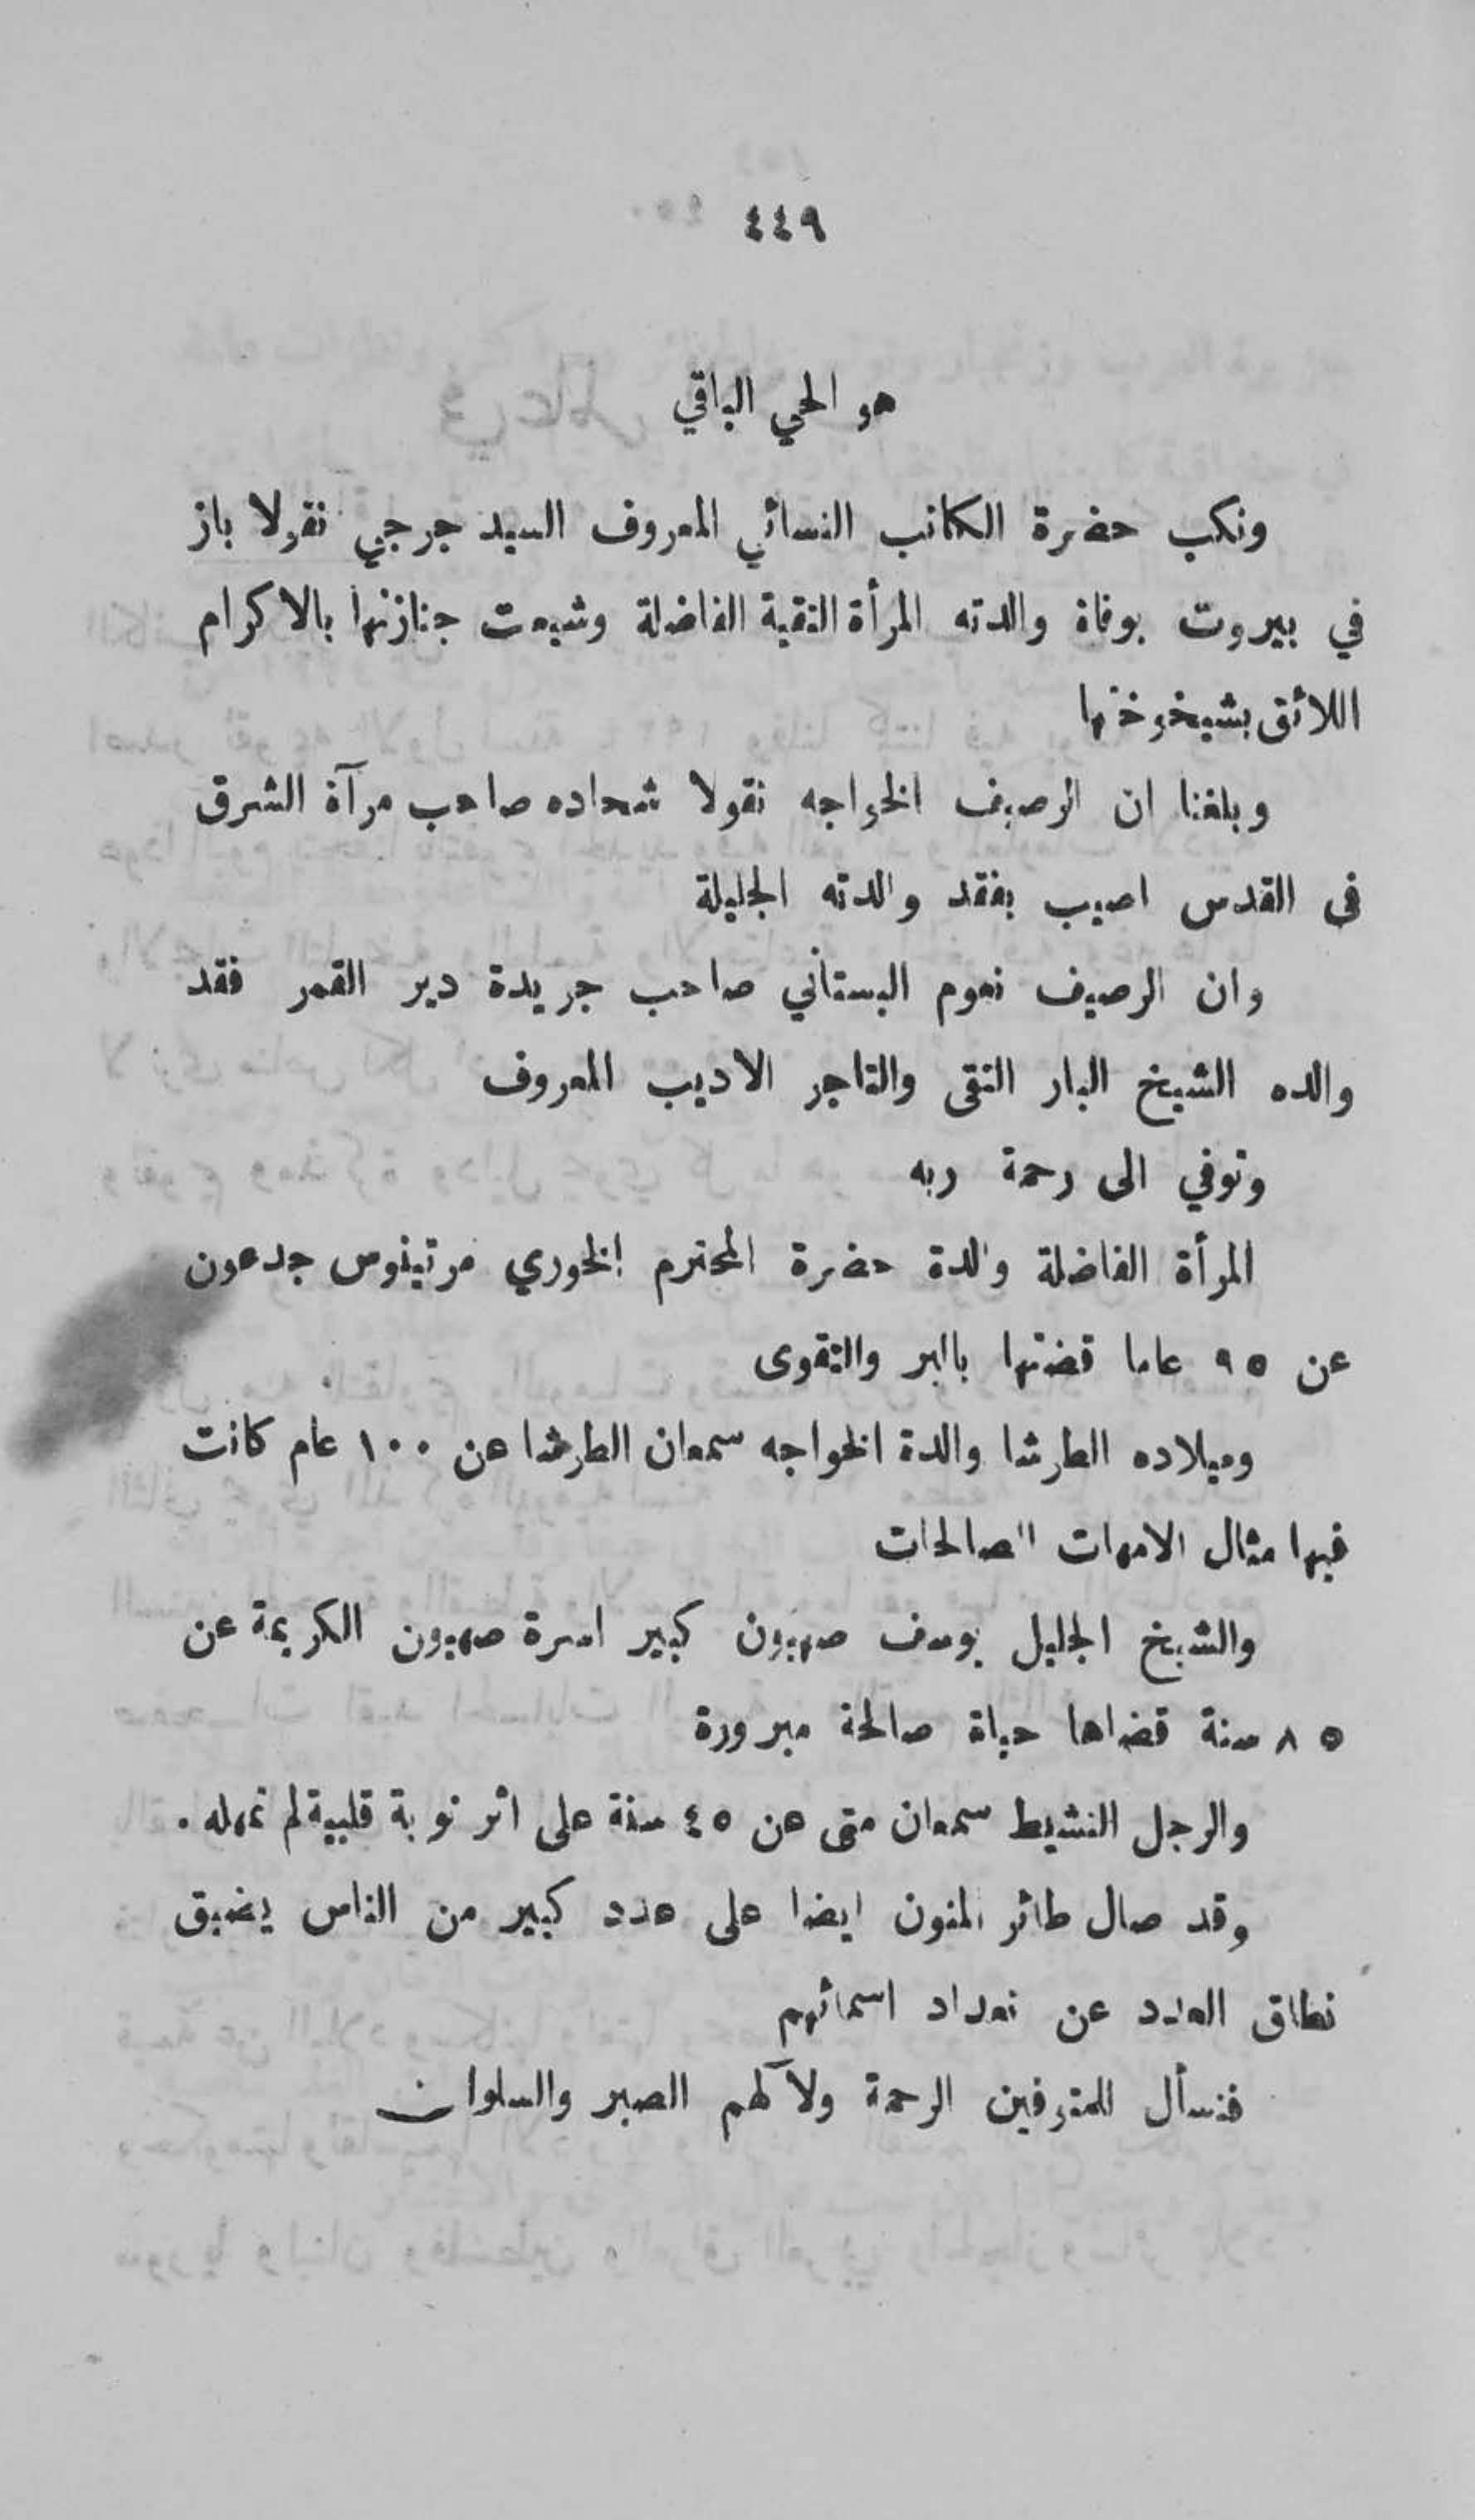 ٤٤٩
هو الحي الباقي
ونكب حضرة الكاتب النسائي المعروف السيد جرجي نقولا باز
في بيروت بوفاة والدته المرأة التقية الفاضلة وشيعت جنازتها بالاكرام
اللائق بشيخوختها
وبلغنا ان الرصيف الخواجه نقولا شحاده صاحب مرآة الشرق
في القدس اصيب بفقد والدته الجليلة
وان الرصيف نعوم البستاني صاحب جريدة دير القمر فقد
والده الشيخ البار التقى والتاجر الاديب المعروف
وتوفي الى رحمة ربه
المرأة الفاضلة والدة حضرة المحترم الخوري مرتينوس جدعون
عن ٩٥ عاما قضتها بالبر والتقوى
وميلاده الطرشا والدة الخواجه سمعان الطرشا عن ١٠٠ عام كانت
فيها مثال الامهات الصالحات
والشيخ الجليل يوسف صهيون كبير اسرة صهيون الكريمة عن
٨٥ سنة قضاها حياة صالحة مبرورة
والرجل النشيط سمعان متى عن ٤٥ سنة على اثر نوبة قلبية لم تمهله .
وقد صال طائر المنون ايضا على عدد كبير من الناس يضيق
نطاق العدد عن تعداد اسمائهم
فنسأل للمتوفين الرحمة ولآلهم الصبر والسلوان